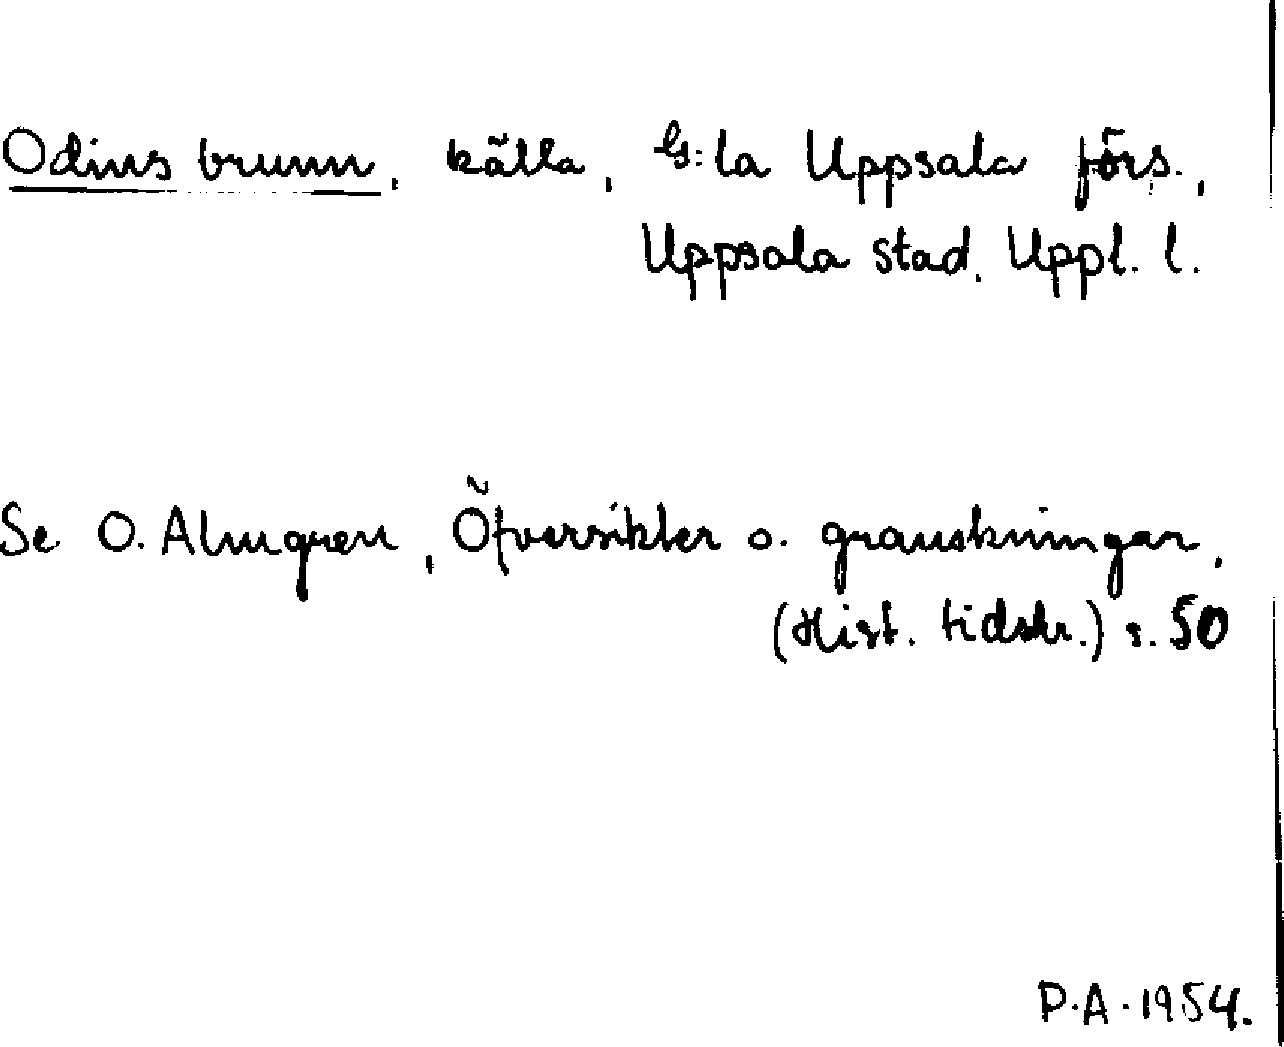 Odins brunn, källa, G:la Uppsala förs.,
Uppsala stad, Uppl. l.
Se O. Almgren, Öfversikter o. granskningar,
(Hist. tidskr.) s. 50
P.A. 1954.